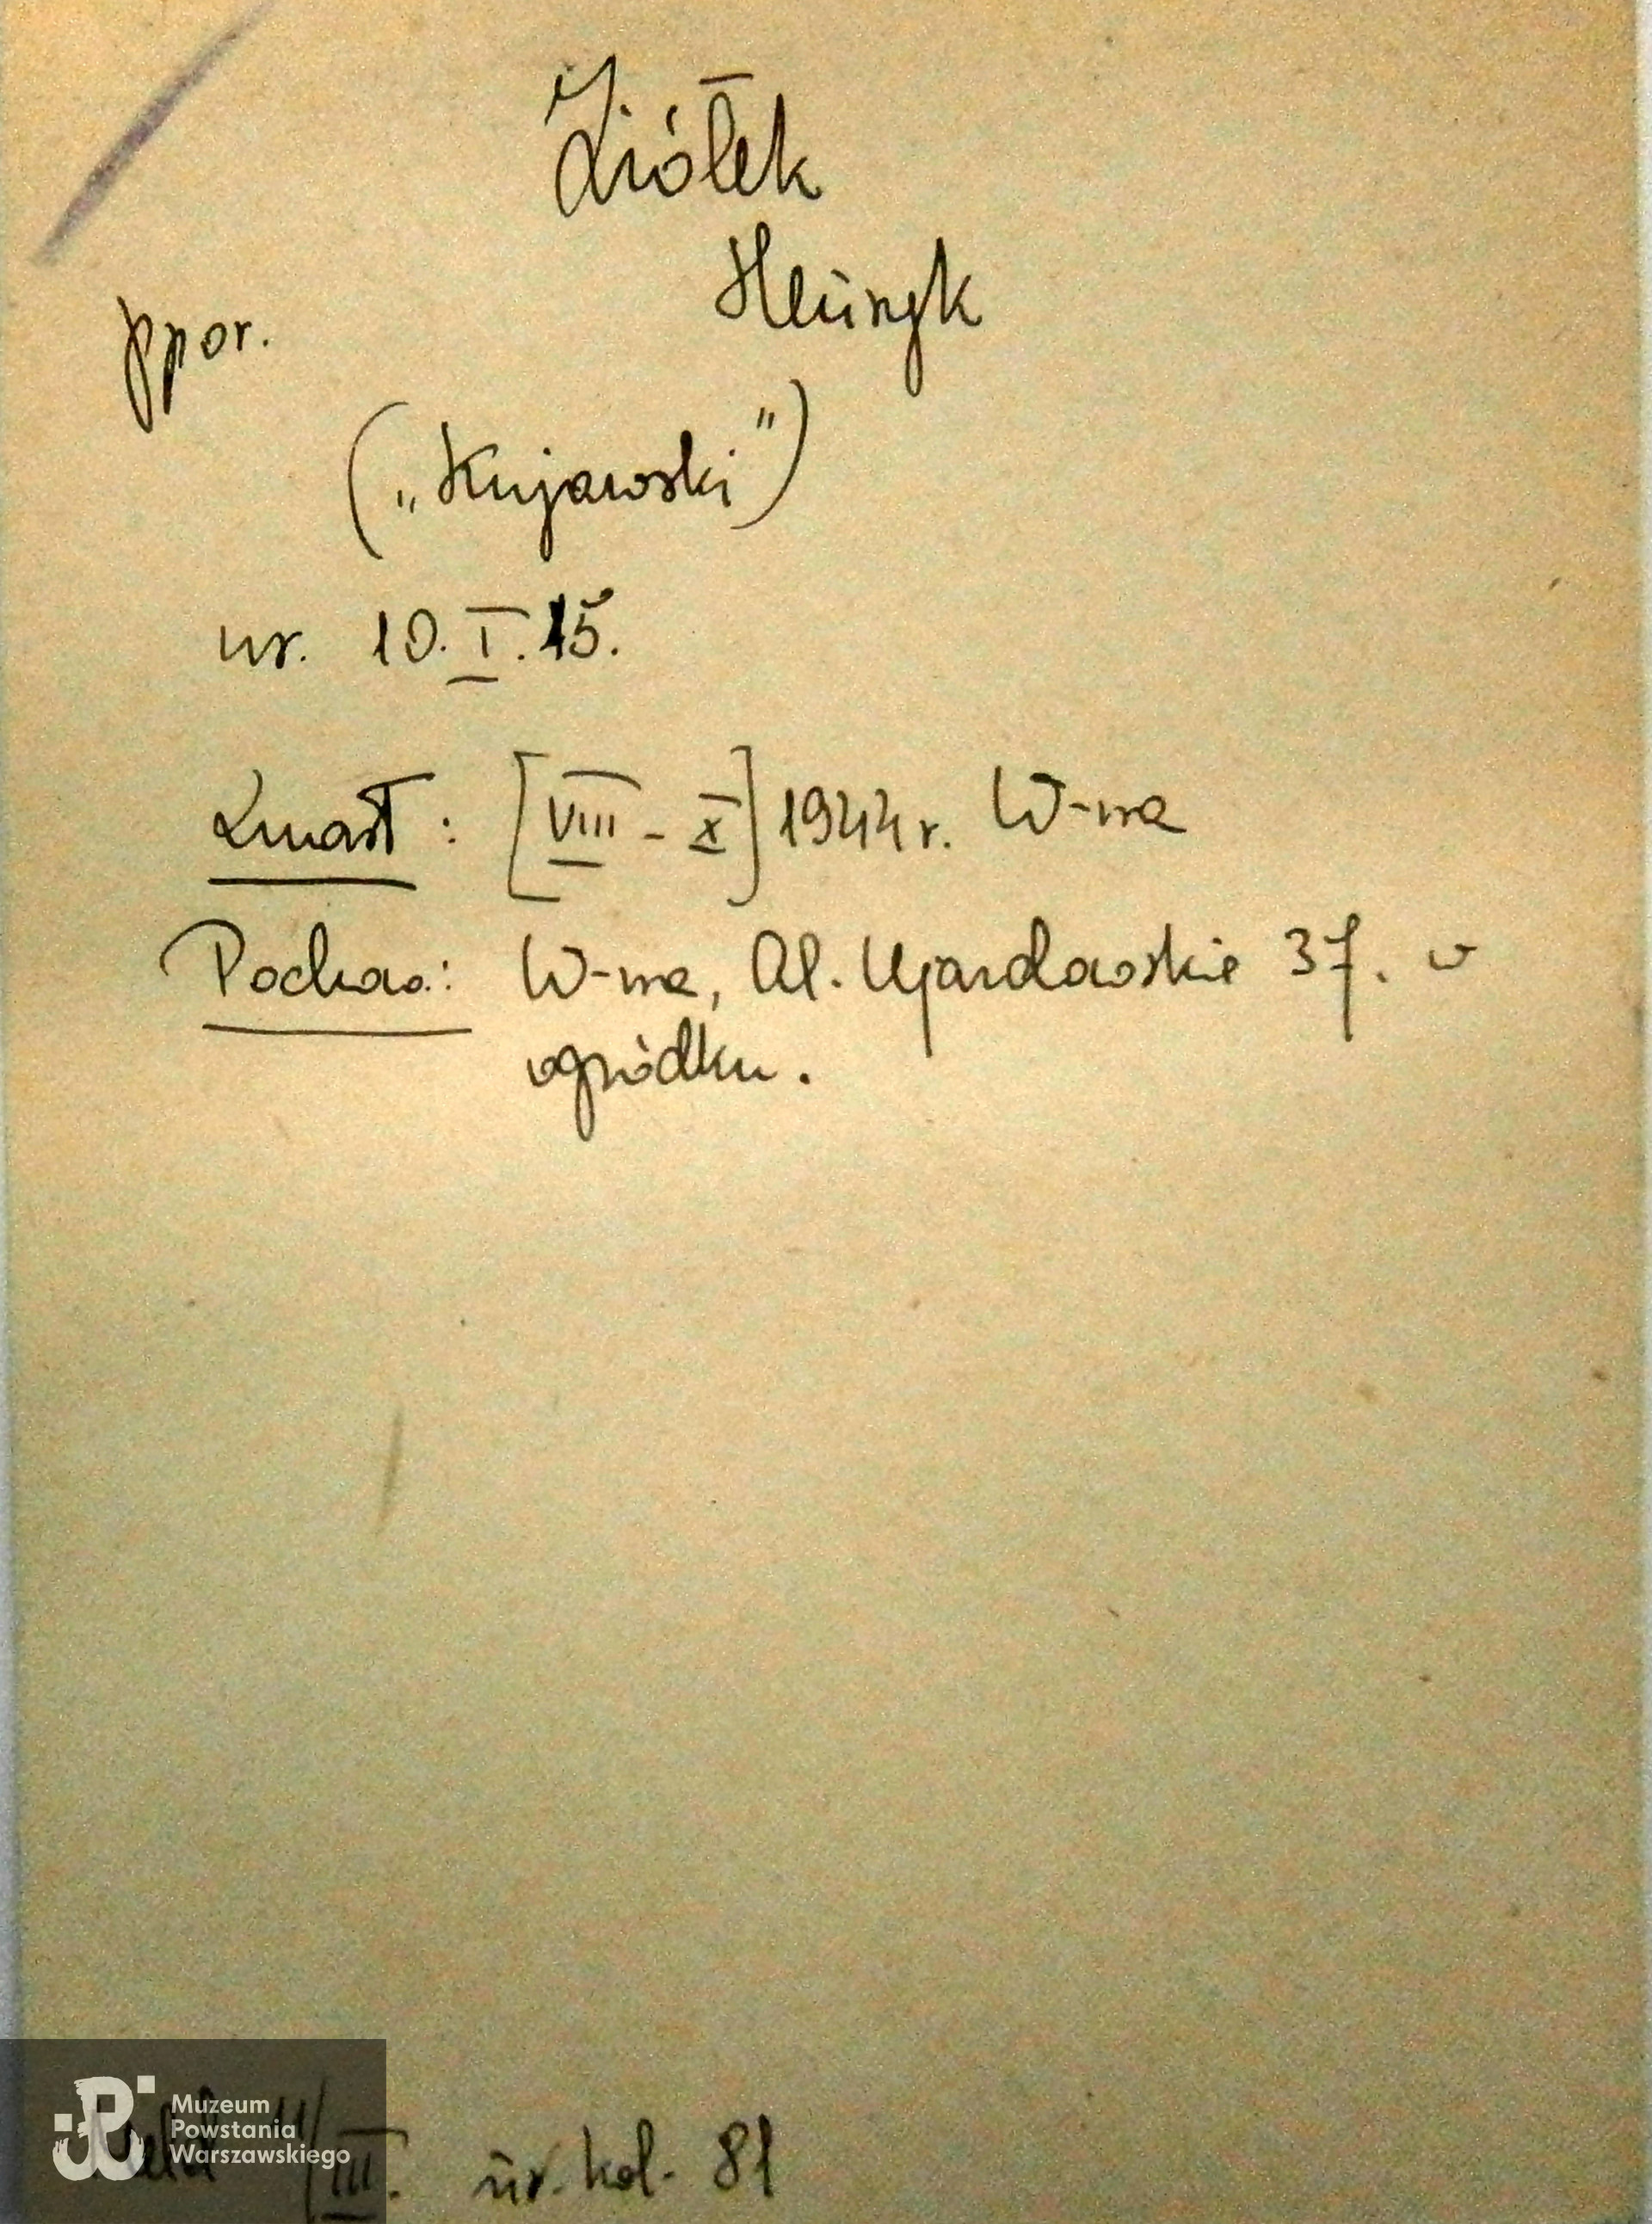 Ziółek
Henryk
ppor.
("Kujawski")
ur. 10.I.15.
Zmarł: [VIII - X] 1944 r. W-wa
Pochow.: W-wa, Al. Ujazdowskie 37. w
ogródku.
III. nr. kol. 81
Muzeum
Powstania
Warszawskiego